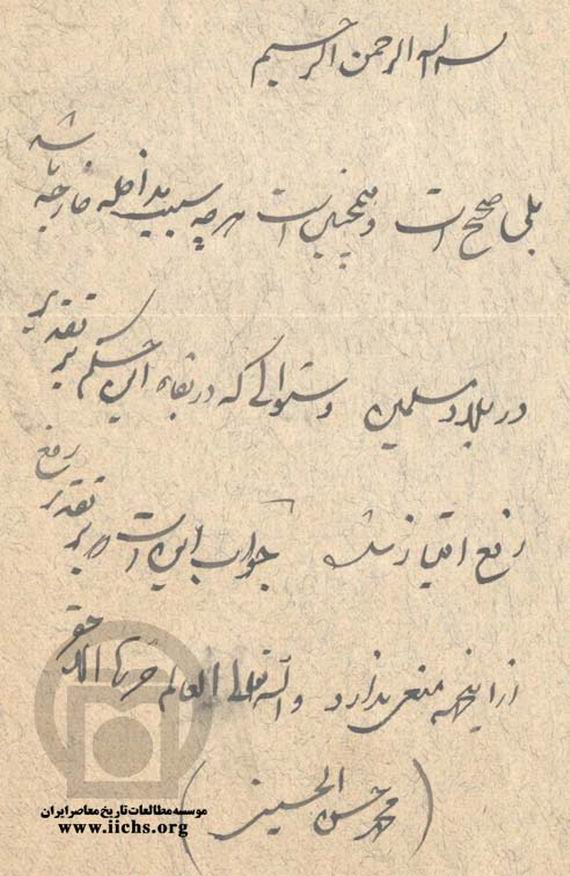 بسم الله الرحمن الرحیم
بلی صحیح است و همچنین است هرچه سبب مداخله خارجه باشد
در بلاد مسلمین و سئوالی که در بقاء این حکم بر تقدیر
رفع امتیاز شد جواب این است بر تقدیر رفع
از این جهه منعی ندارد والله تعالی العالم حرره الاحقر
(محمد حسن الحسینی)
موسسه مطالعات تاریخ معاصر ایران
www.iichs.org